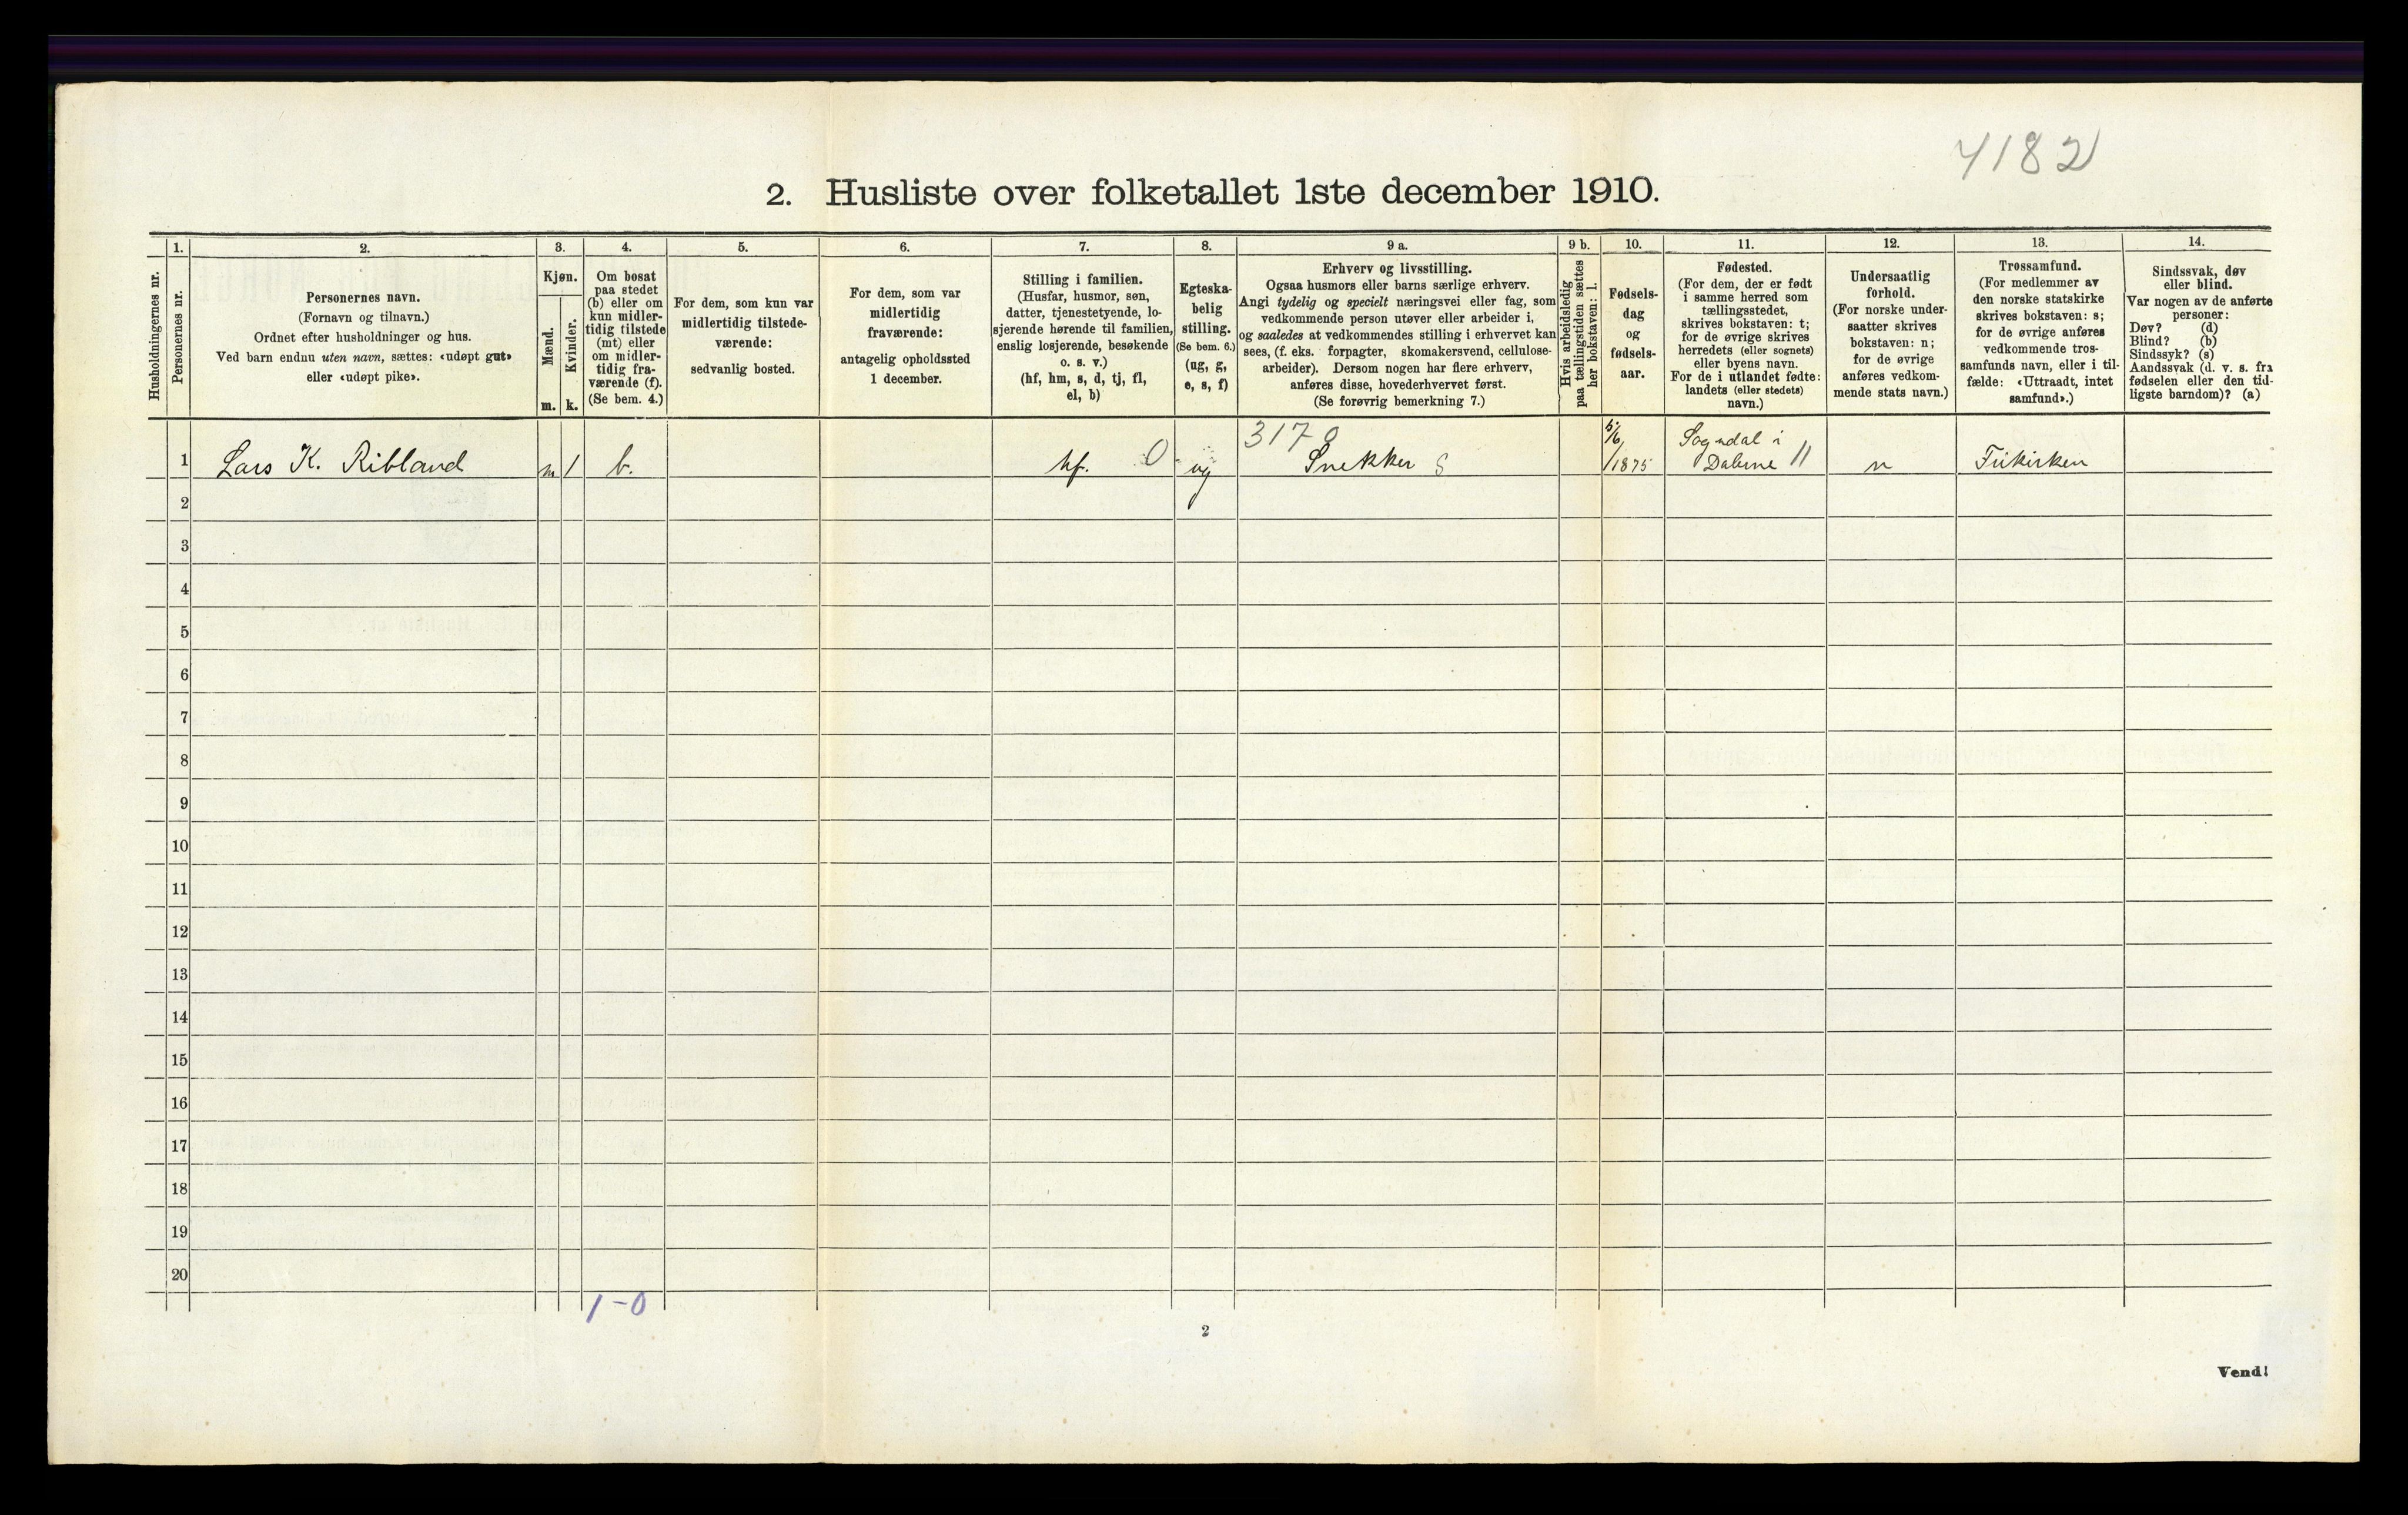 4182
2. Husliste over folketallet 1ste december 1910.
Husholdningernes nr.
1.
Personernes nr.
2.
Personernes navn.
(Fornavn og tilnavn.)
Ordnet efter husholdninger og hus.
Ved barn endnu uten navn, sættes: «udøpt gut»
eller «udøpt pike».
3.
Kjøn.
Mænd.
Kvinder.
m.
k.
4.
Om bosat
paa stedet
(b) eller om
kun midler-
tidig tilstede
(mt) eller
om midler-
tidig fra-
værende (f).
(Se bem. 4.)
5.
For dem, som kun var
midlertidig tilstede-
værende:
sedvanlig bosted.
6.
For dem, som var
midlertidig
fraværende:
antagelig opholdssted
1 december.
7.
Stilling i familien.
(Husfar, husmor, søn,
datter, tjenestetyende, lo-
sjerende hørende til familien,
enslig losjerende, besøkende
o. s. v.)
(hf, hm, s, d, tj, fl,
el, b)
8.
Egteska-
belig
stilling.
(Se bem. 6.)
(ug, g,
e, s, f)
9 a.
Erhverv og livsstilling.
Ogsaa husmors eller barns særlige erhverv.
Angi tydelig og specielt næringsvei eller fag, som
vedkommende person utøver eller arbeider i,
og saaledes at vedkommendes stilling i erhvervet kan
sees, (f. eks. forpagter, skomakersvend, cellulose-
arbeider). Dersom nogen har flere erhverv,
anføres disse, hovederhvervet først.
(Se forøvrig bemerkning 7.)
9 b.
Hvis arbeidsledig
paa tællingstiden sættes
her bokstaven: l.
10.
Fødsels-
dag
og
fødsels-
aar.
11.
Fødested.
(For dem, der er født
i samme herred som
tællingsstedet,
skrives bokstaven: t;
for de øvrige skrives
herredets (eller sognets)
eller byens navn.
For de i utlandet fødte:
landets (eller stedets)
navn.)
12.
Undersaatlig
forhold.
(For norske under-
saatter skrives
bokstaven: n;
for de øvrige
anføres vedkom-
mende stats navn.)
13.
Trossamfund.
(For medlemmer av
den norske statskirke
skrives bokstaven: s;
for de øvrige anføres
vedkommende tros-
samfunds navn, eller i til-
fælde: «Uttraadt, intet
samfund».)
14.
Sindssvak, døv
eller blind.
Var nogen av de anførte
personer:
Døv? (d)
Blind? (b)
Sindssyk? (s)
Aandssvak (d. v. s. fra
fødselen eller den tid-
ligste barndom)? (a)
3170
5/6
Sogndal i
1 Lars K. Ribland m 1 b. hf. 0 ug Snekker S 1875 Dalerne 11 n Frikirken
2
3
4
5
6
7
8
9
10
11
12
13
14
15
16
17
18
19
20
1-0
2
Vend!